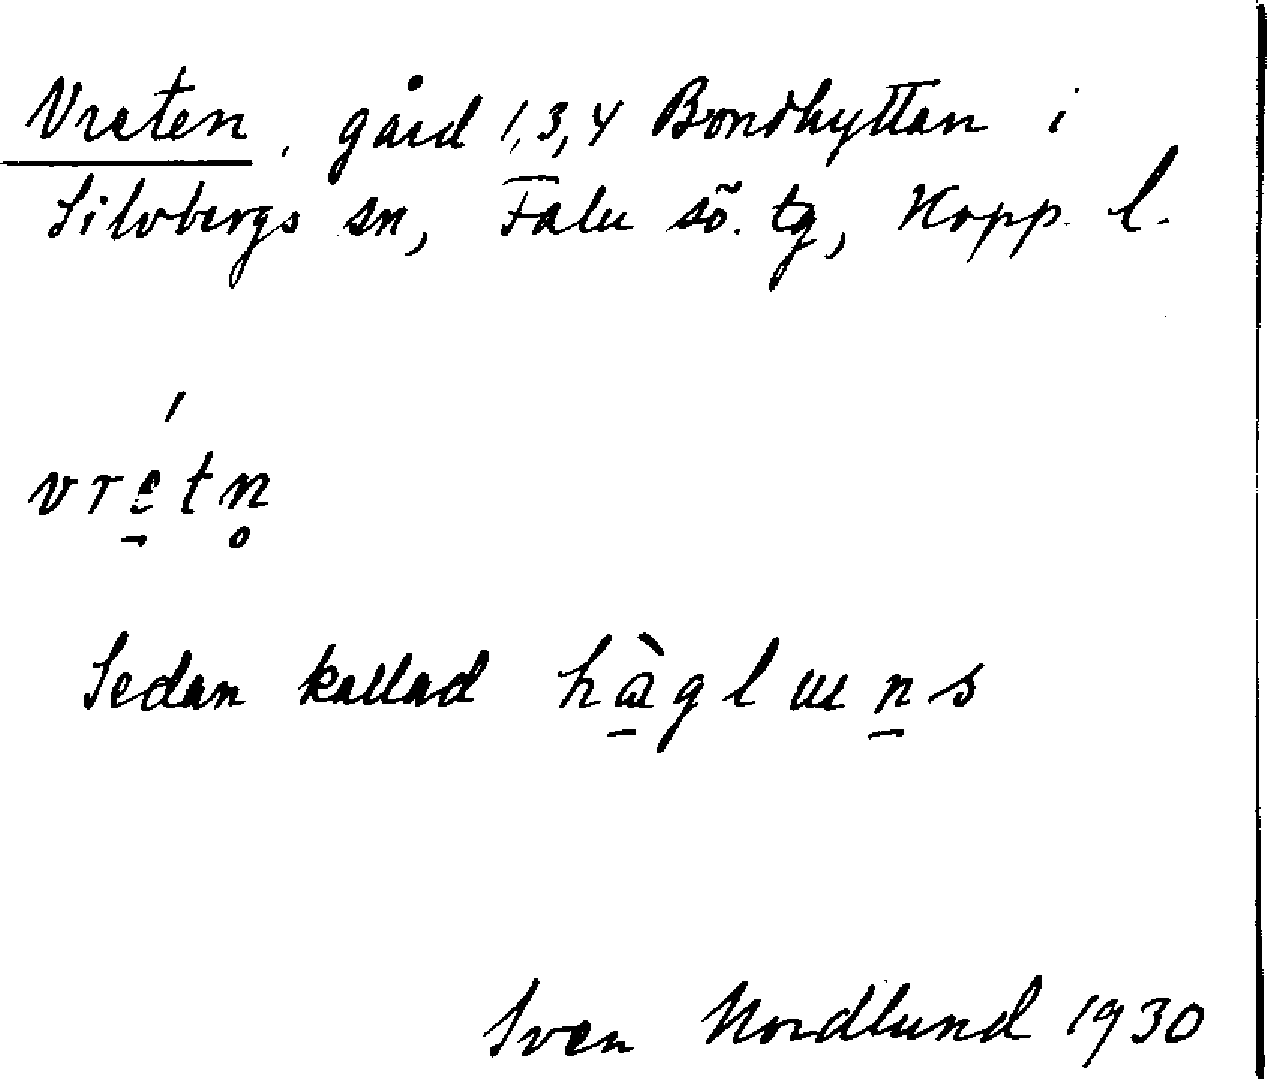 Vreten, gård 1,3,4 Bondhyttan i
Silvbergs sn, Falu sö. tg, Kopp. l.
vré̠tn̥
Sedan kallad hà̠glun̠s
Sven Nordlund 1930